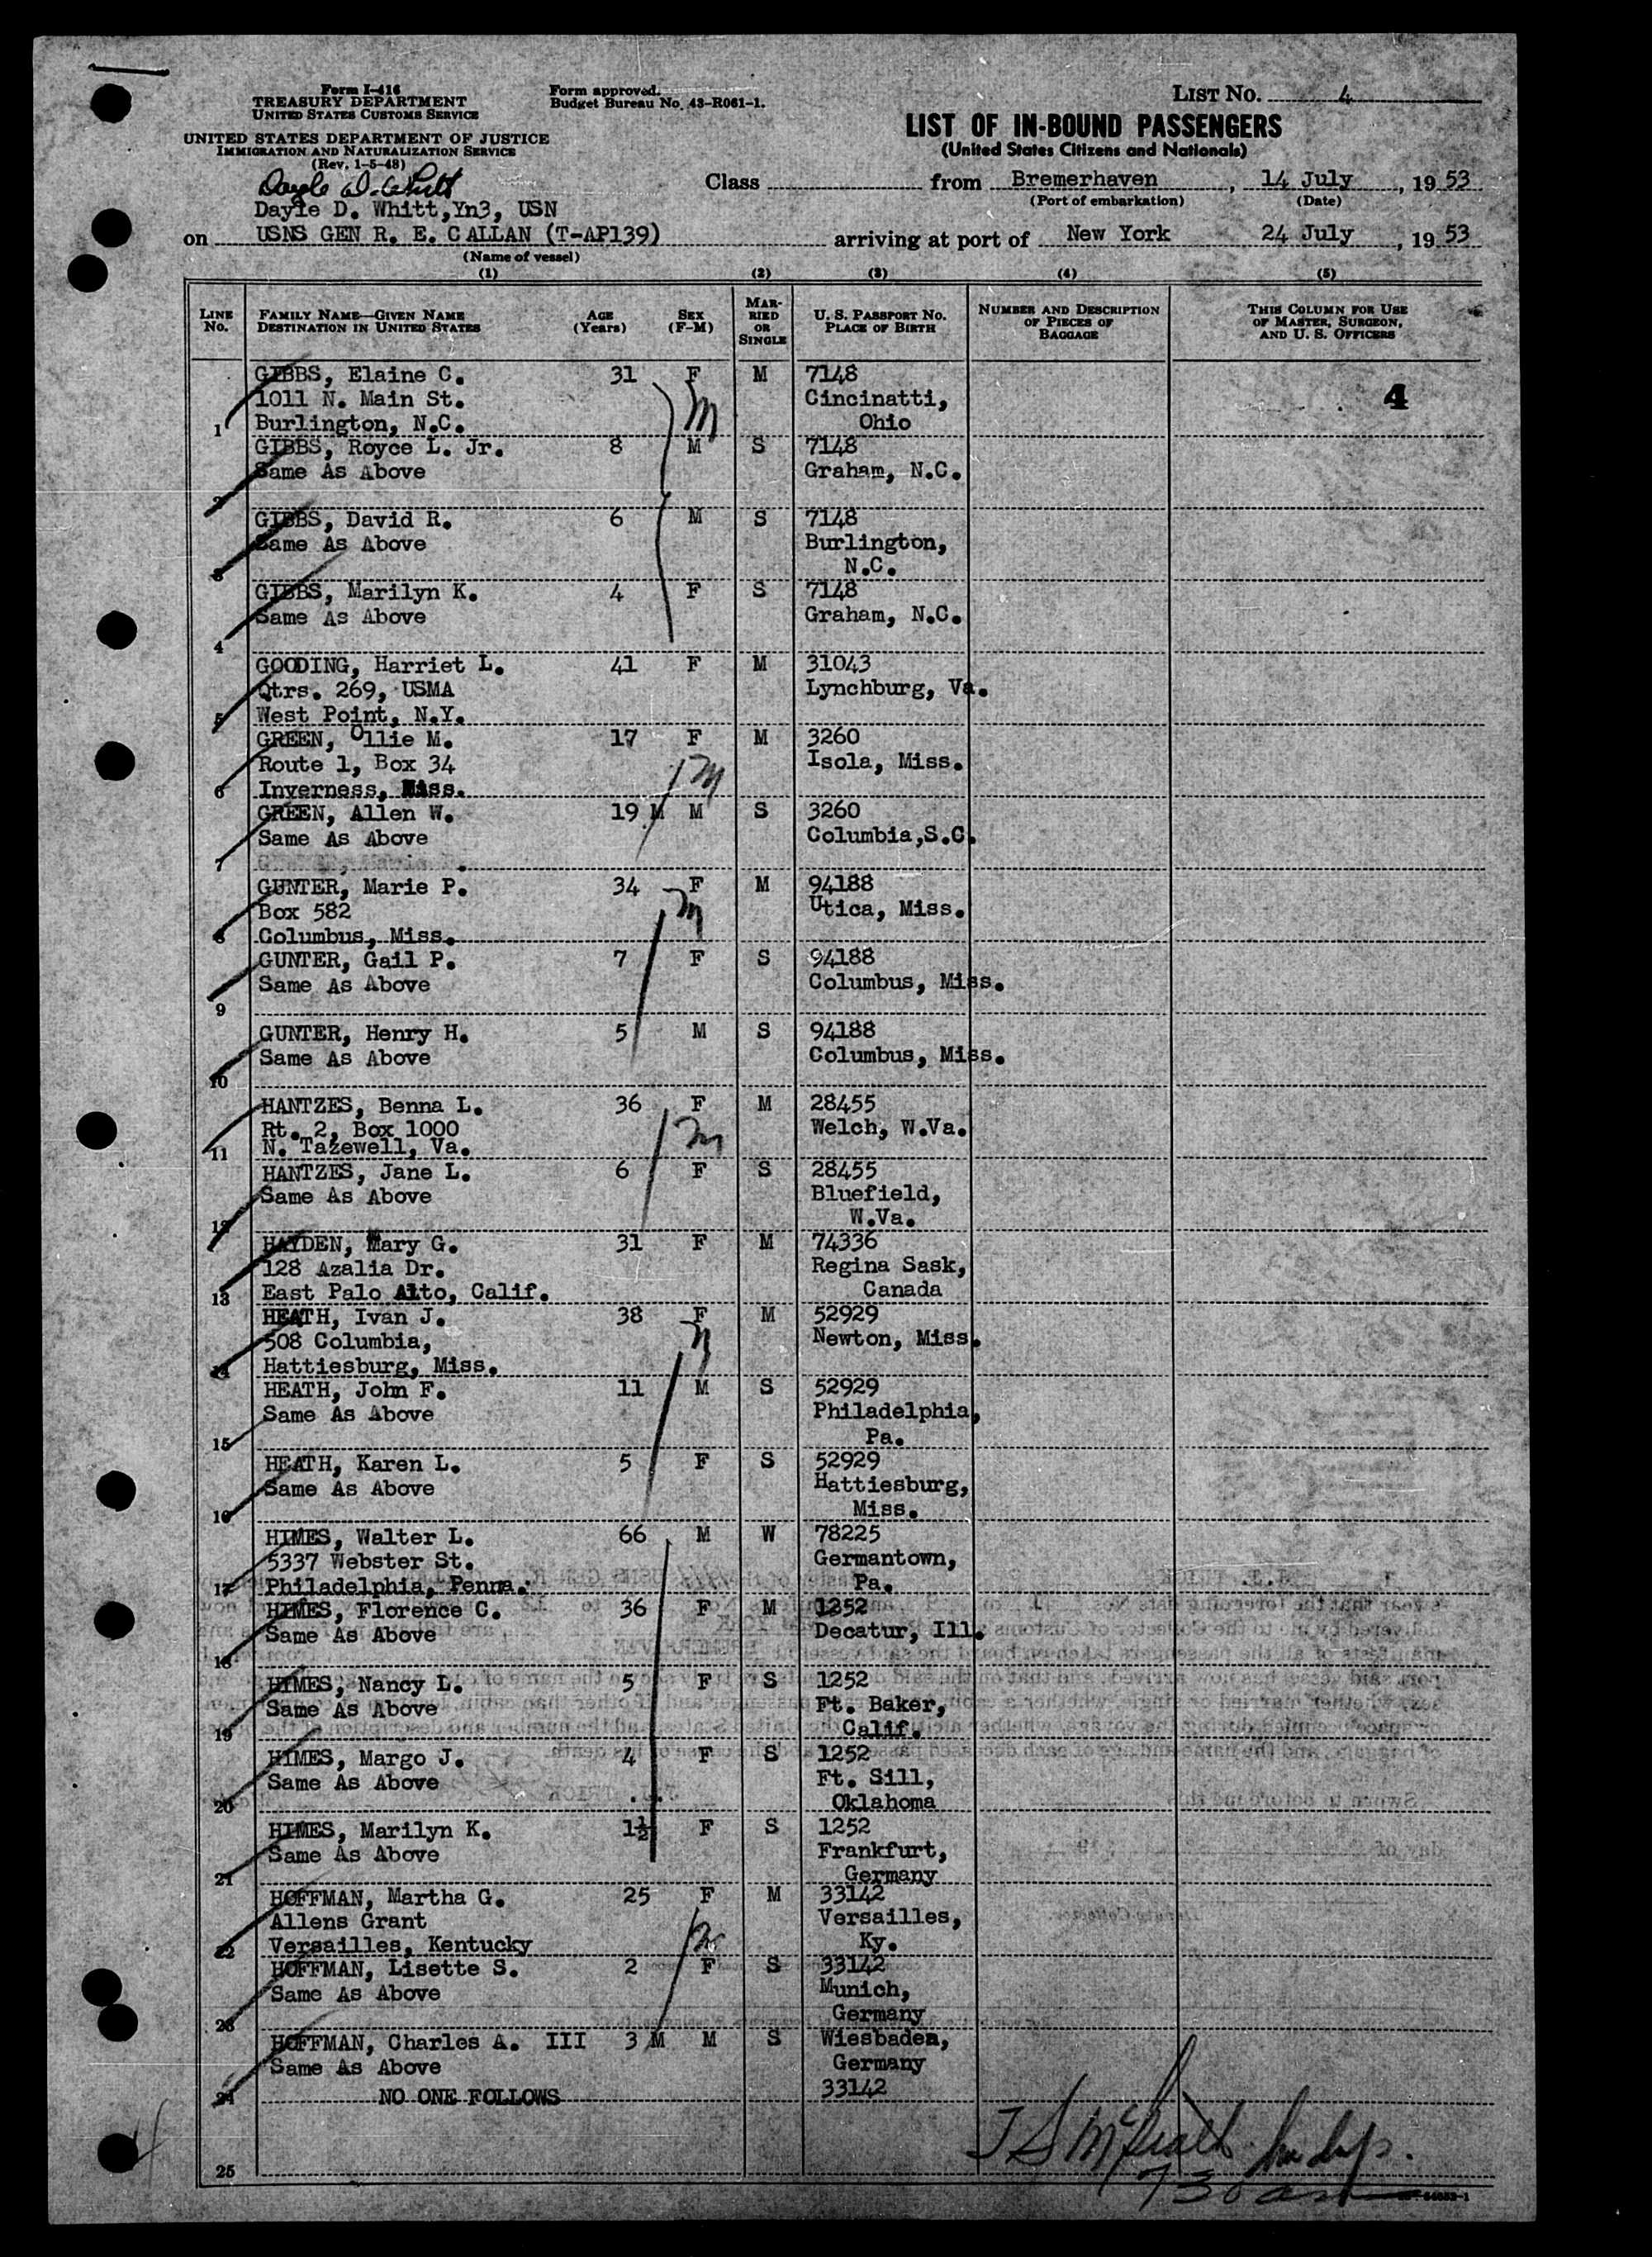 Form I-416
TREASURY DEPARTMENT
UNITED STATES CUSTOMS SERVICE
Form approved.
Budget Bureau No. 43-R061-1.
LIST NO. 4
UNITED STATES DEPARTMENT OF JUSTICE
IMMIGRATION AND NATURALIZATION SERVICE
(Rev. 1-5-48)
LIST OF IN-BOUND PASSENGERS
(United States Citizens and Nationals)
Dayle D. Whitt
Dayle D. Whitt,Yn3, USN
Class from Bremerhaven, 14 July, 19 53
(Port of embarkation) (Date)
on USNS GEN R. E. CALLAN (T-AP139) arriving at port of New York 24 July, 19 53
(Name of vessel)
(1) (2) (3) (4) (5)
LINE No. FAMILY NAME—GIVEN NAME DESTINATION IN UNITED STATES AGE (Years) SEX (F-M) MARRIED OR SINGLE U. S. PASSPORT NO. PLACE OF BIRTH NUMBER AND DESCRIPTION OF PIECES OF BAGGAGE THIS COLUMN FOR USE OF MASTER, SURGEON, AND U. S. OFFICERS
GIBBS, Elaine C. 31 F M 7148
1011 N. Main St. Cincinatti, 4
1 Burlington, N.C. Ohio
GIBBS, Royce L. Jr. 8 M S 7148
Same As Above Graham, N.C.
2
GIBBS, David R. 6 M S 7148
Same As Above Burlington,
3 N.C.
GIBBS, Marilyn K. 4 F S 7148
Same As Above Graham, N.C.
4
GOODING, Harriet L. 41 F M 31043
Qtrs. 269, USMA Lynchburg, Va.
5 West Point, N.Y.
GREEN, Ollie M. 17 F M 3260
Route 1, Box 34 Isola, Miss.
6 Inverness, Miss.
GREEN, Allen W. 19 M M S 3260
Same As Above Columbia,S.C.
7
GUNTER, Marie P. 34 F M 94188
Box 582 Utica, Miss.
8 Columbus, Miss.
GUNTER, Gail P. 7 F S 94188
Same As Above Columbus, Miss.
9
GUNTER, Henry H. 5 M S 94188
Same As Above Columbus, Miss.
10
HANTZES, Benna L. 36 F M 28455
Rt. 2, Box 1000 Welch, W.Va.
11 N. Tazewell, Va.
HANTZES, Jane L. 6 F S 28455
Same As Above Bluefield,
12 W.Va.
HAYDEN, Mary G. 31 F M 74336
128 Azalia Dr. Regina Sask,
13 East Palo Alto, Calif. Canada
HEATH, Ivan J. 38 F M 52929
508 Columbia, Newton, Miss.
14 Hattiesburg, Miss.
HEATH, John F. 11 M S 52929
Same As Above Philadelphia,
15 Pa.
HEATH, Karen L. 5 F S 52929
Same As Above Hattiesburg,
16 Miss.
HIMES, Walter L. 66 M W 78225
5337 Webster St. Germantown,
17 Philadelphia, Penna. Pa.
HIMES, Florence C. 36 F M 1252
Same As Above Decatur, Ill.
18
HIMES, Nancy L. 5 F S 1252
Same As Above Ft. Baker,
19 Calif.
HIMES, Margo J. 4 F S 1252
Same As Above Ft. Sill,
20 Oklahoma
HIMES, Marilyn K. 1½ F S 1252
Same As Above Frankfurt,
21 Germany
HOFFMAN, Martha G. 25 F M 33142
Allens Grant Versailles,
22 Versailles, Kentucky Ky.
HOFFMAN, Lisette S. 2 F S 33142
Same As Above Munich,
23 Germany
HOFFMAN, Charles A. III 3 M M S Wiesbaden,
Same As Above Germany
24 NO ONE FOLLOWS 33142
25